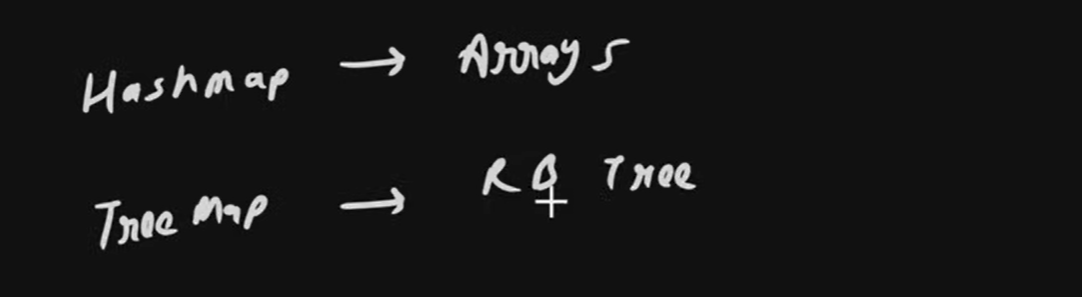 Hashmap → Arrays
Tree Map → RB Tree